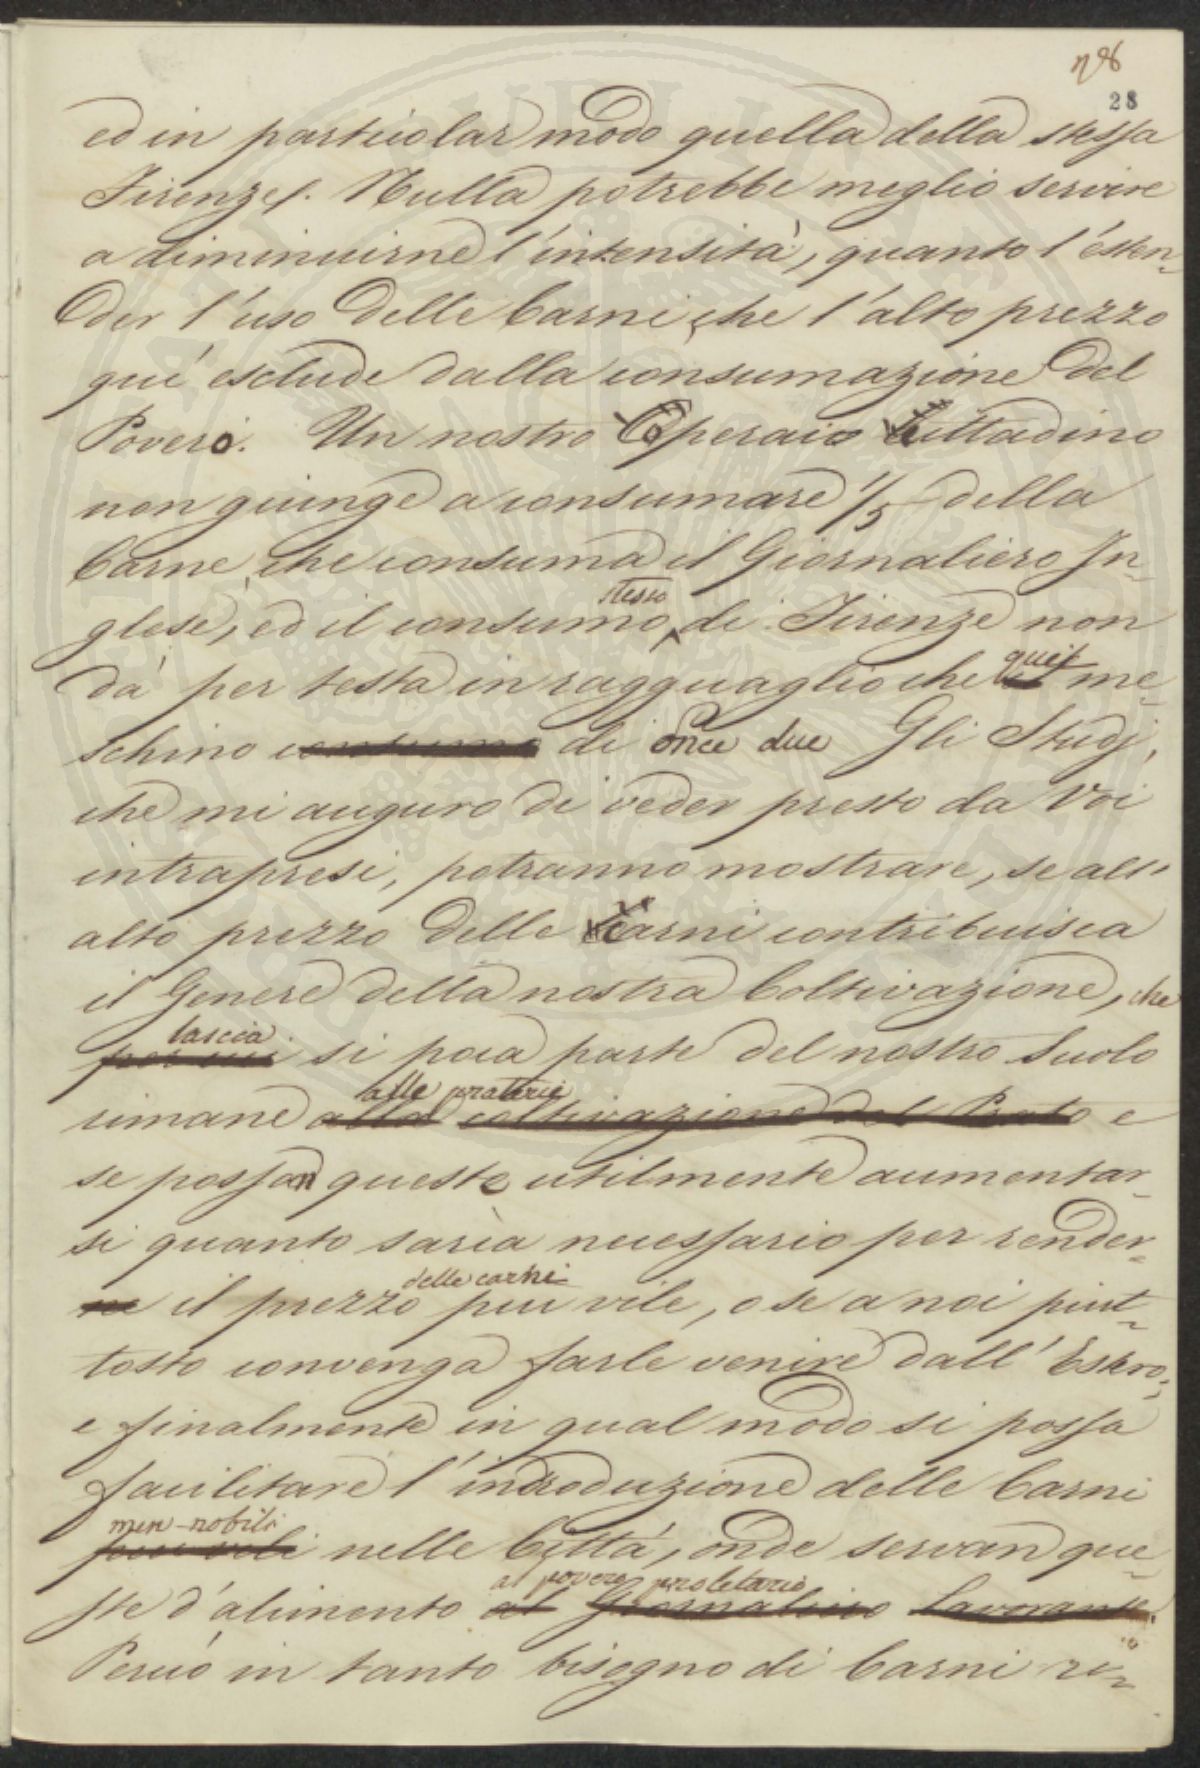 28
ed in particolar modo quella della stessa
Firenze. Nulla potrebbe meglio servire
a diminuirne l'intensità, quanto l'esten-
der l'uso delle Carni, che l'alto prezzo
quì esclude dalla consumazione del
Povero. Un nostro Operaio Cittadino
non giunge a consumare 1/5 della
Carne, che consuma il Giornaliero In-
stesso
glese, ed il consumo di Firenze non
dà per testa in ragguaglio che quel me-
schino consumo di once due Gli Studj,
che mi auguro di veder presto da Voi
intrapresi, potranno mostrare, se all'
alto prezzo delle Carni contribuisca
il Genere della nostra Coltivazione, che
lascia
per cui si poca parte del nostro Suolo
alle praterie
rimane alla coltivazione del Prato e
se possan queste utilmente aumentar-
si quanto sarìa necessario per render-
delle carni
ne il prezzo piu vile, o se a noi piut-
tosto convenga farle venire dall'Estero;
e finalmente in qual modo si possa
facilitare l'introduzione delle Carni
men nobili
più vili nelle Città, onde servan que-
al povero proletario
ste d'alimento al Giornaliero Lavorante.
Perciò in tanto bisogno di Carni ri-